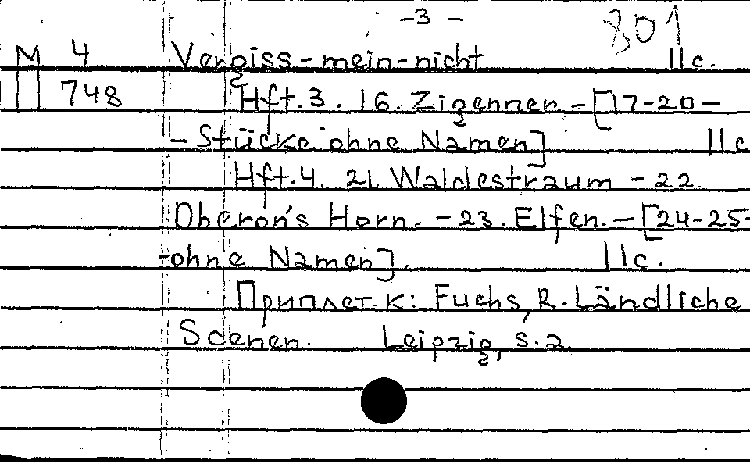 -3- 801
M 4 Vergiss-mein-nicht 11c.
748 Hft.3. 16. Zigenner - [17-20-
- Stücke ohne Namen] 11c
Hft.4. 21. Waldestraum - 22.
Oberon's Horn. - 23. Elfen. - [24-25-
-ohne Namen]. 11c.
Приплет к: Fuchs, R. Ländliche
Scenen. Leipzig, s.a.